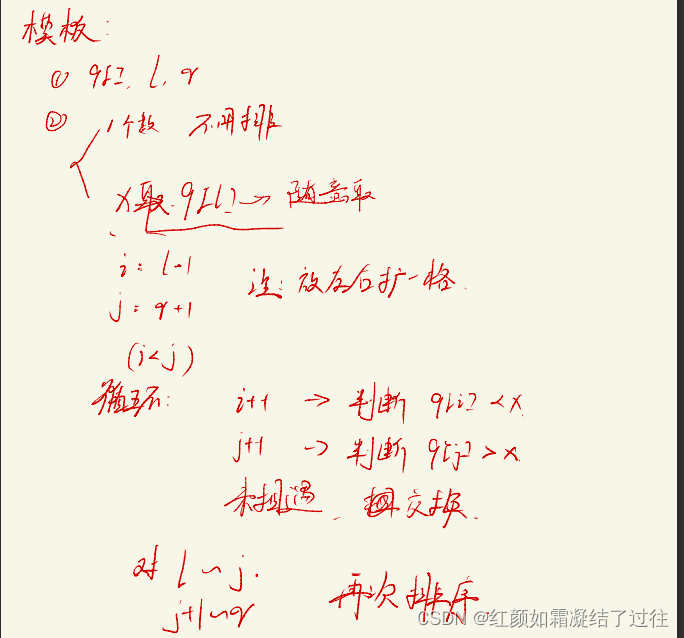 模板:
① q[], l, r
② 1个数 不用排
x取 q[l] → 随意取
i = l-1
注: 放左右扩一格.
j = r+1
(i<j)
循环: i++ → 判断 q[i] < x.
j++ → 判断 q[j] > x.
未相遇, 交换.
对 l ~ j.
j+1 ~ r 再次排序
CSDN @红颜如霜凝结了过往